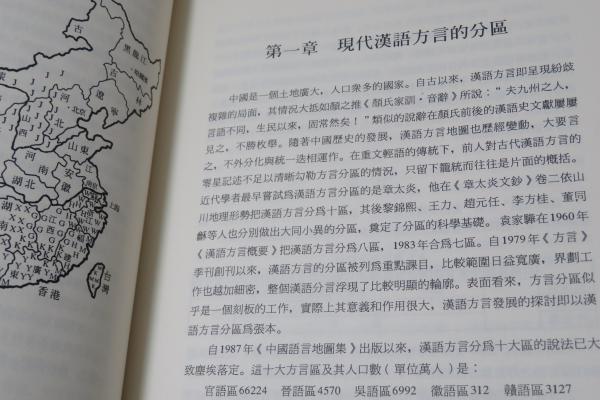 第一章　現代漢語方言的分區
中國是一個土地廣大，人口衆多的國家。自古以來，漢語方言即呈現紛歧
複雜的局面，其情況大抵如顏之推《顏氏家訓·音辭》所說：“夫九州之人，
言語不同，生民以來，固常然矣！”類似的說辭在顏氏前後的漢語史文獻屢屢
見之，不勝枚舉。隨著中國歷史的發展，漢語方言地圖也歷經變動，大要言
之，不外分化與統一迭相運作。在重文輕語的傳統下，前人對古代漢語方言的
零星記述不足以清晰勾勒方言分區的情況，只留下籠統而往往是片面的概括。
近代學者最早嘗試爲漢語方言分區的是章太炎，他在《章太炎文鈔》卷二依山
川地理形勢把漢語方言分爲十區，其後黎錦熙、王力、趙元任、李方桂、董同
龢等人也分別做出大同小異的分區，奠定了分區的科學基礎。袁家驊在1960年
《漢語方言概要》把漢語方言分爲八區，1983年合爲七區。自1979年《方言》
季刊創刊以來，漢語方言的分區被列爲重點課目，比較範圍日益寬廣，界劃工
作也越加細密，整個漢語分言浮現了比較明顯的輪廓。表面看來，方言分區似
乎是一個刻板的工作，實際上其意義和作用很大，漢語方言發展的探討即以漢
語方言分區爲張本。
自1987年《中國語言地圖集》出版以來，漢語方言分爲十大區的說法已大
致塵埃落定。這十大方言區及其人口數（單位萬人）是：
官語區66224　晉語區4570　吳語區6992　徽語區312　贛語區3127
古
黑龍江
吉
林
遼
河
北
山東
河
南
安
徽
江
湖北
上海
湖
南
江
西
台
灣
香港